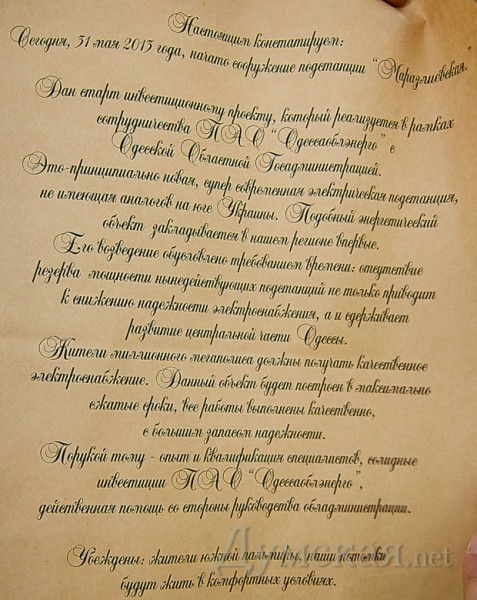 Настоящим констатируем:
Сегодня, 31 мая 2013 года, начато сооружение подстанции "Маразлиевская."
Дан старт инвестиционному проекту, который реализуется в рамках
сотрудничества ПАО "Одессаоблэнерго" с
Одесской Областной Госадминистрацией.
Это-принципиально новая, супер современная электрическая подстанция,
не имеющая аналогов на юге Украины. Подобный энергетический
объект закладывается в нашем регионе впервые.
Его возведение обусловлено требованием времени: отсутствие
резерва мощности нынедействующих подстанций не только приводит
к снижению надежности электроснабжения, а и сдерживает
развитие центральной части Одессы.
Жители миллионного мегаполиса должны получать качественное
электроснабжение. Данный объект будет построен в максимально
сжатые сроки, все работы выполнены качественно,
с большим запасом надежности.
Порукой тому - опыт и квалификация специалистов, солидные
инвестиции ПАО "Одессаоблэнерго",
действенная помощь со стороны руководства обладминистрации.
Убеждены: жители южной пальмиры, наши потомки
будут жить в комфортных условиях.
Думская.net